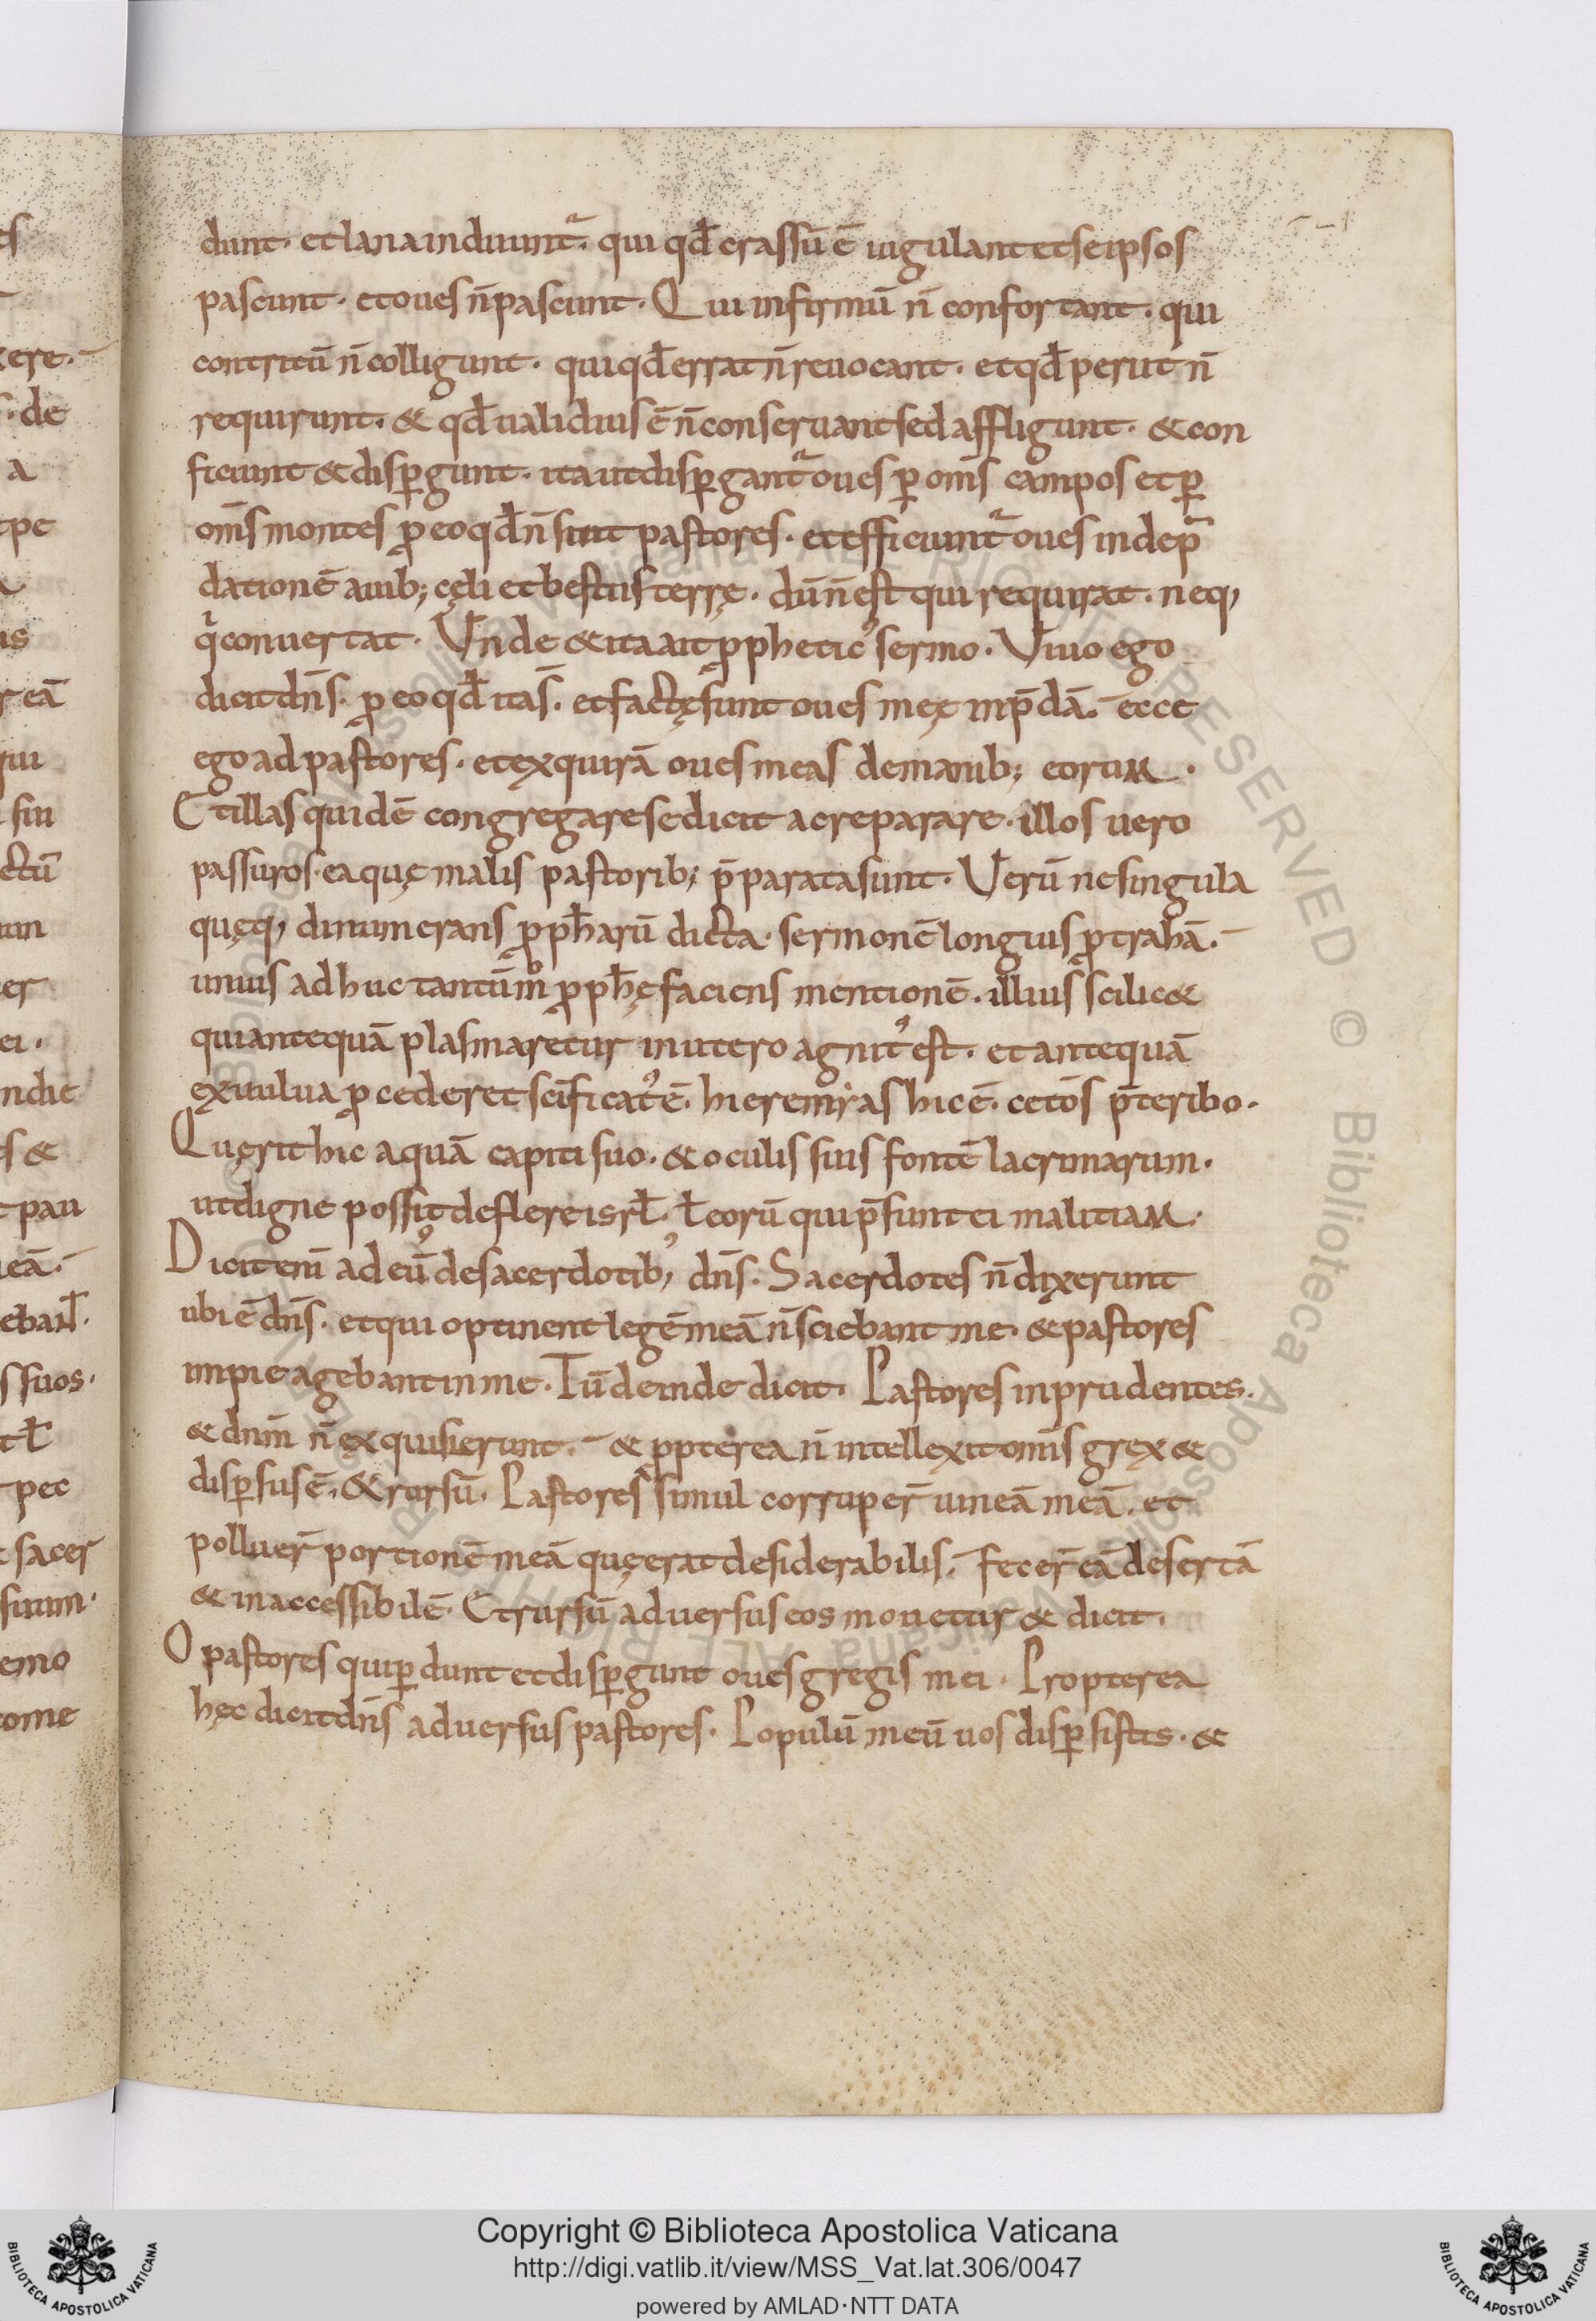 dunt. et lana induunt᷑. qui qđ crassū ē iugulant et seipsos
pascunt. et oues n̄ pascunt. Qui infirmū n̄ confortant. qui
contritū n̄ colligunt. qui qđ errat n̄ reuocant. et qđ periit n̄
requirunt. & qđ ualidius ē n̄ conseruant sed affligunt. & con
ficiunt & disꝑgunt. ita ut disꝑgant᷑ oues ꝑ om̄s campos et ꝑ
om̄s montes ꝓ eo qđ n̄ sint pastores. et efficiunt᷑ oues in dep̄
dationē auib; cęli et bestiis terrę. dū n̄ est qui requirat. neq,
q̄ conuertat. Vnde & ita ait ꝓphetic᾽ sermo. Viuo ego
dicit dn̄s. ꝓ eo qđ itas̄. et factę sunt oues meę in p̄dā. ecce
ego ad pastores. et exquirā oues meas de manib; eorum.
Et illas quidē congregare se dicit ac reparare. illos uero
passuros. ea quę malis pastorib; p̄parata sunt. Verū ne singula
quęq, dinumerans ꝓph̄arū dicta. sermonē longius ꝓtrahā.
unius adhuc tantūm̊ ꝓph̄ę faciens mentionē. illius scilic&
qui antequā plasmaretur in utero agnit᾽ est. et antequā
ex uulua ꝓcederet sc̄ificat᾽ ē. hieremias hic ē. cet̄os p̄teribo.
Quęrit hic aquā capiti suo. & oculis suis fontē lacrimarum.
ut digne possit deflere isrł. ł eorū qui p̄sunt ei malitiam.
Dicit enī ad eū de sacerdotib, dn̄s. Sacerdotes n̄ dixerunt
ubi ē dn̄s. et qui optinent legē meā n̄ sciebant me. & pastores
impie agebant in me. Tū deinde dicit. Pastores inprudentes.
& dnm̄ n̄ exquisierunt. & ꝓpterea n̄ intellexit omīs grex &
disꝑsus ē. & rursū. Pastores simul corruper̄ uineā meā. et
polluer̄ portionē meā quę erat desiderabilis. fecer̄ eā desertā
& inaccessibilē. Et rursū aduersus eos mouetur & dicit.
O pastores qui ꝑdunt et disꝑgunt oues gregis mei. Propterea
hęc dicit dn̄s aduersus pastores. Populū meū uos disꝑsistis. &
Copyright © Biblioteca Apostolica Vaticana
http://digi.vatlib.it/view/MSS_Vat.lat.306/0047
powered by AMLAD·NTT DATA
BIBLIOTECA APOSTOLICA VATICANA
BIBLIOTECA APOSTOLICA VATICANA